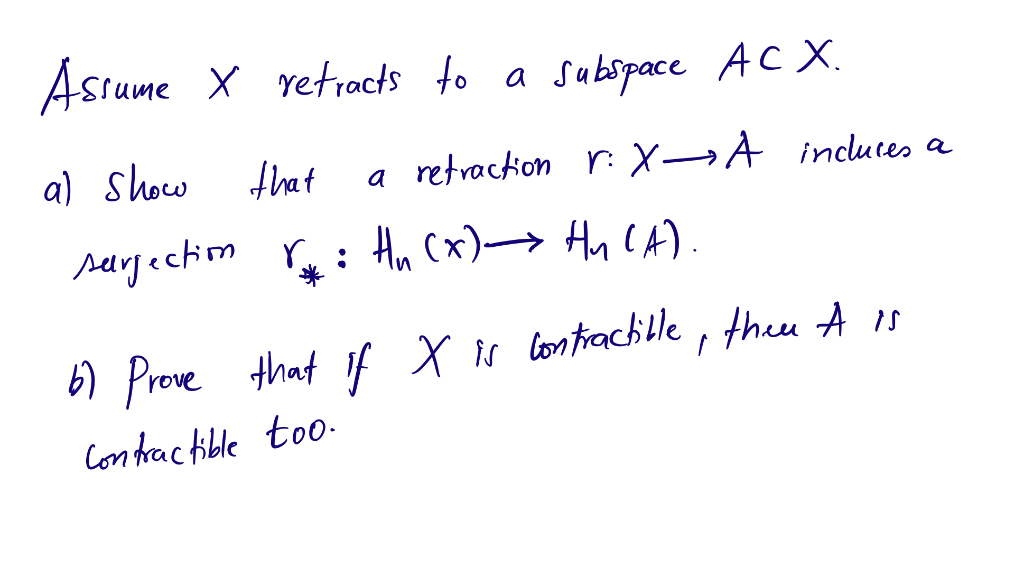 Assume X retracts to a subspace A ⊂ X.
a) Show that a retraction r: X → A induces a
surjection r_* : Hn (X) → Hn (A).
b) Prove that if X is contractible, then A is
contractible too.